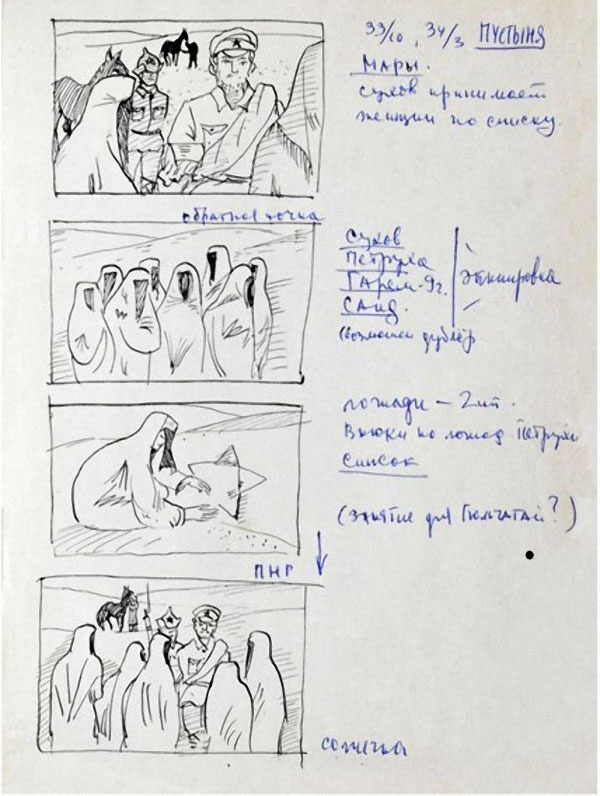 33/10, 34/3 ПУСТЫНЯ
МАРЫ.
Сухов принимает
женщин по списку.
обратная точка
Сухов
Петруха
Гарем - 9 г.
САИД.
Экипировка
(возможен дублёр
лошади – 2 шт.
Вьюки на лошад. Петрухи
Список
(занятие для Гюльчатай?)
ПНР